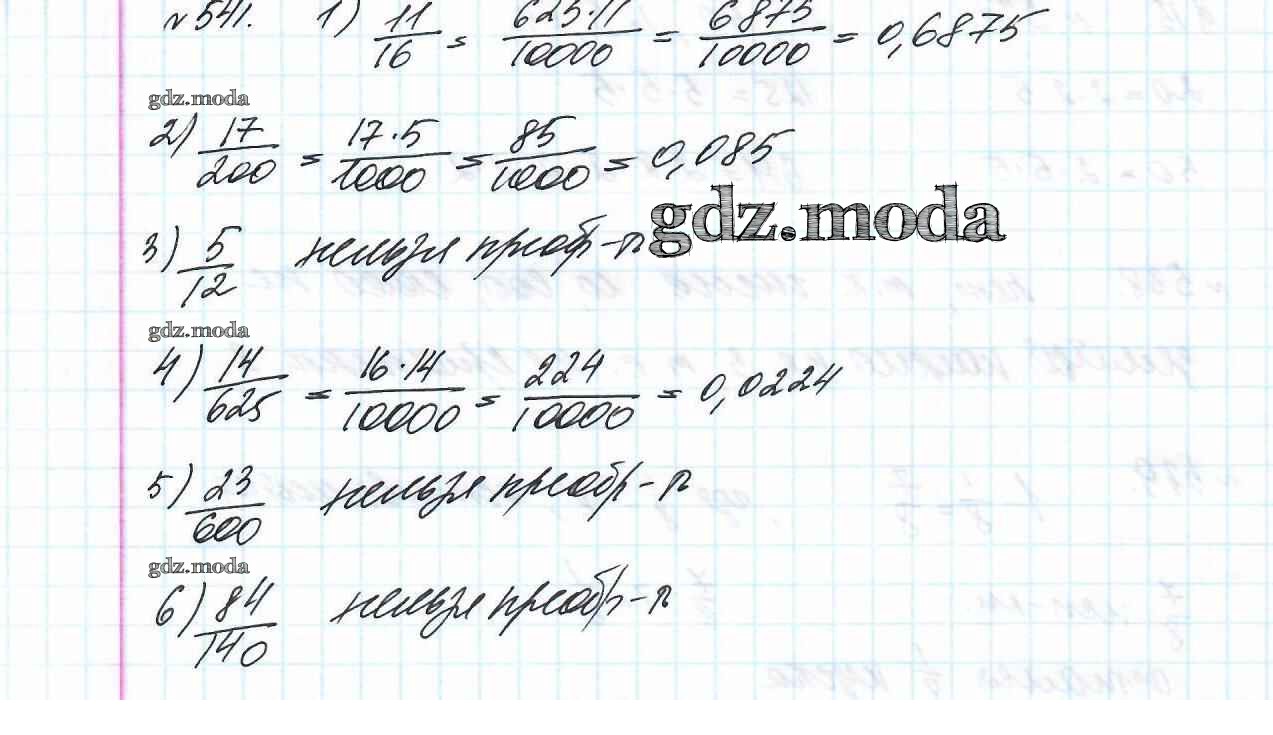 №541. 1) 11/16 = 625·11/10000 = 6875/10000 = 0,6875
gdz.moda
2) 17/200 = 17·5/1000 = 85/1000 = 0,085
gdz.moda
3) 5/12 нельзя преобр-ть
gdz.moda
4) 14/625 = 16·14/10000 = 224/10000 = 0,0224
5) 23/600 нельзя преобр-ть
gdz.moda
6) 84/140 нельзя преобр-ть